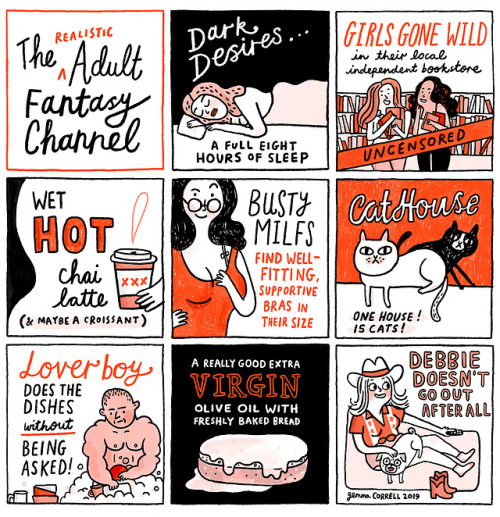 The REALISTIC ^ Adult
Fantasy
Channel
Dark
Desires...
A FULL EIGHT
HOURS OF SLEEP
GIRLS GONE WILD
in their local
independent bookstore
UNCENSORED
WET
HOT
chai
latte
(& MAYBE A CROISSANT)
XXX
BUSTY
MILFS
FIND WELL-
FITTING,
SUPPORTIVE
BRAS IN
THEIR SIZE
CatHouse
ONE HOUSE!
15 CATS!
Loverboy
DOES THE
DISHES
without
BEING
ASKED!
A REALLY GOOD EXTRA
VIRGIN
OLIVE OIL WITH
FRESHLY BAKED BREAD
DEBBIE
DOESN'T
GO OUT
AFTER ALL
gemma CORRELL 2019